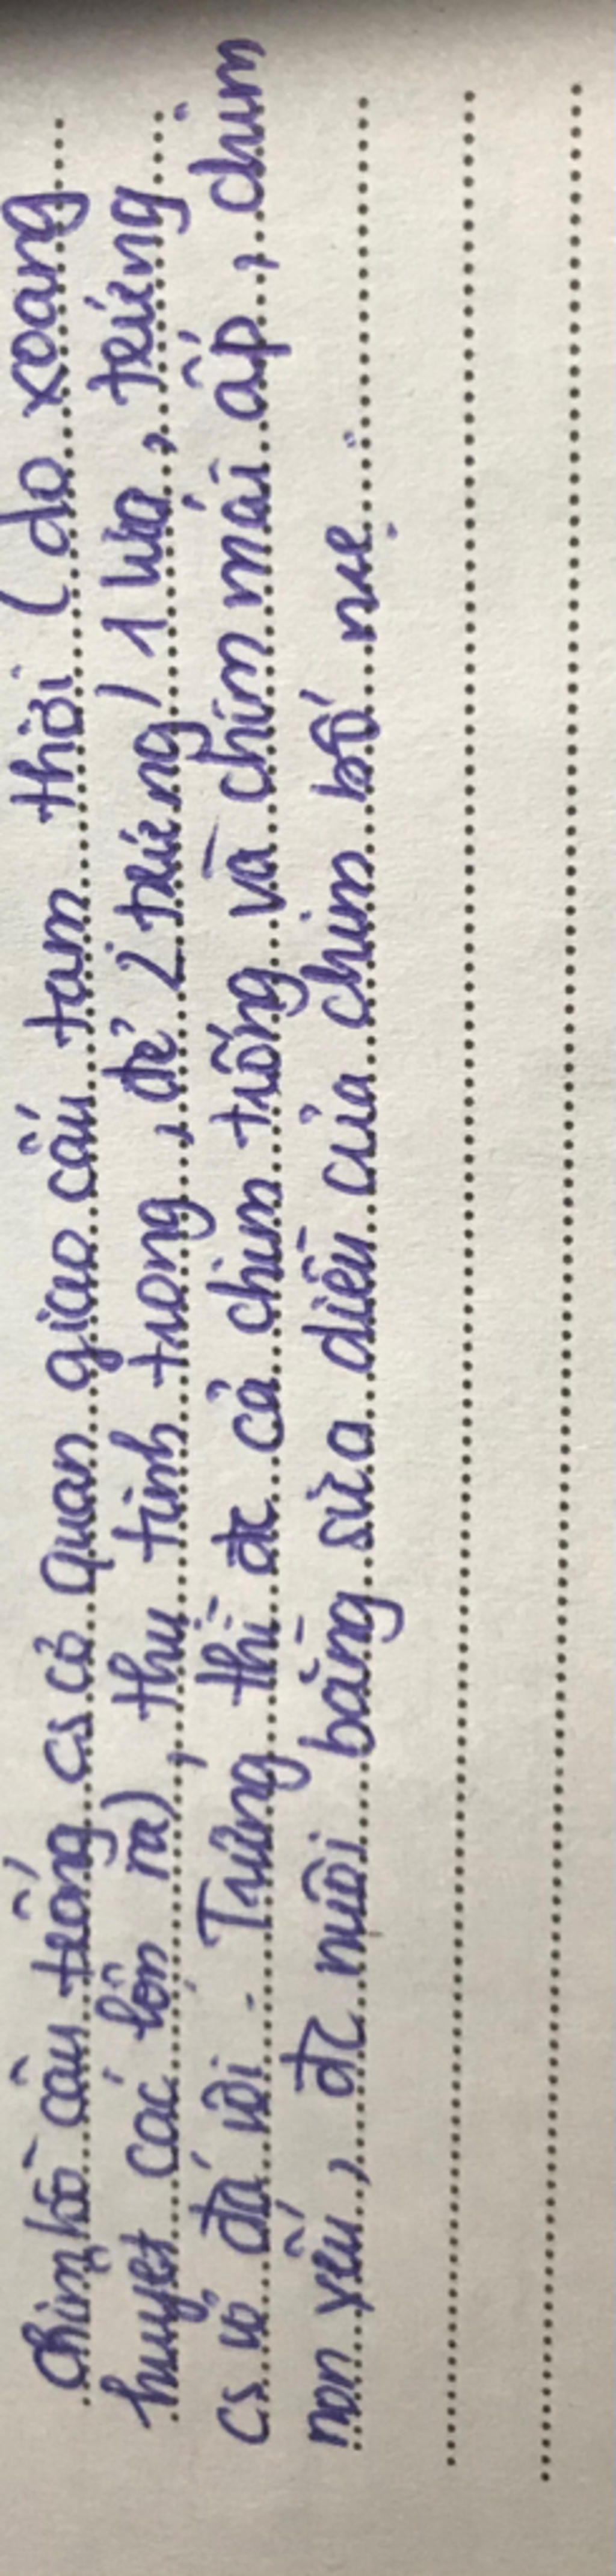 Chim bồ câu trống cs cơ quan giao cấu tam thời (do xoang
huyệt các lồn ra), thụ tinh trong, đẻ 2 trứng / 1 lứa, trứng
cs vỏ đá vôi. Trứng thì đc cả chim trống và chim mái ấp, chim
non yếu, đc nuôi bằng sữa diều của chim bố mẹ.